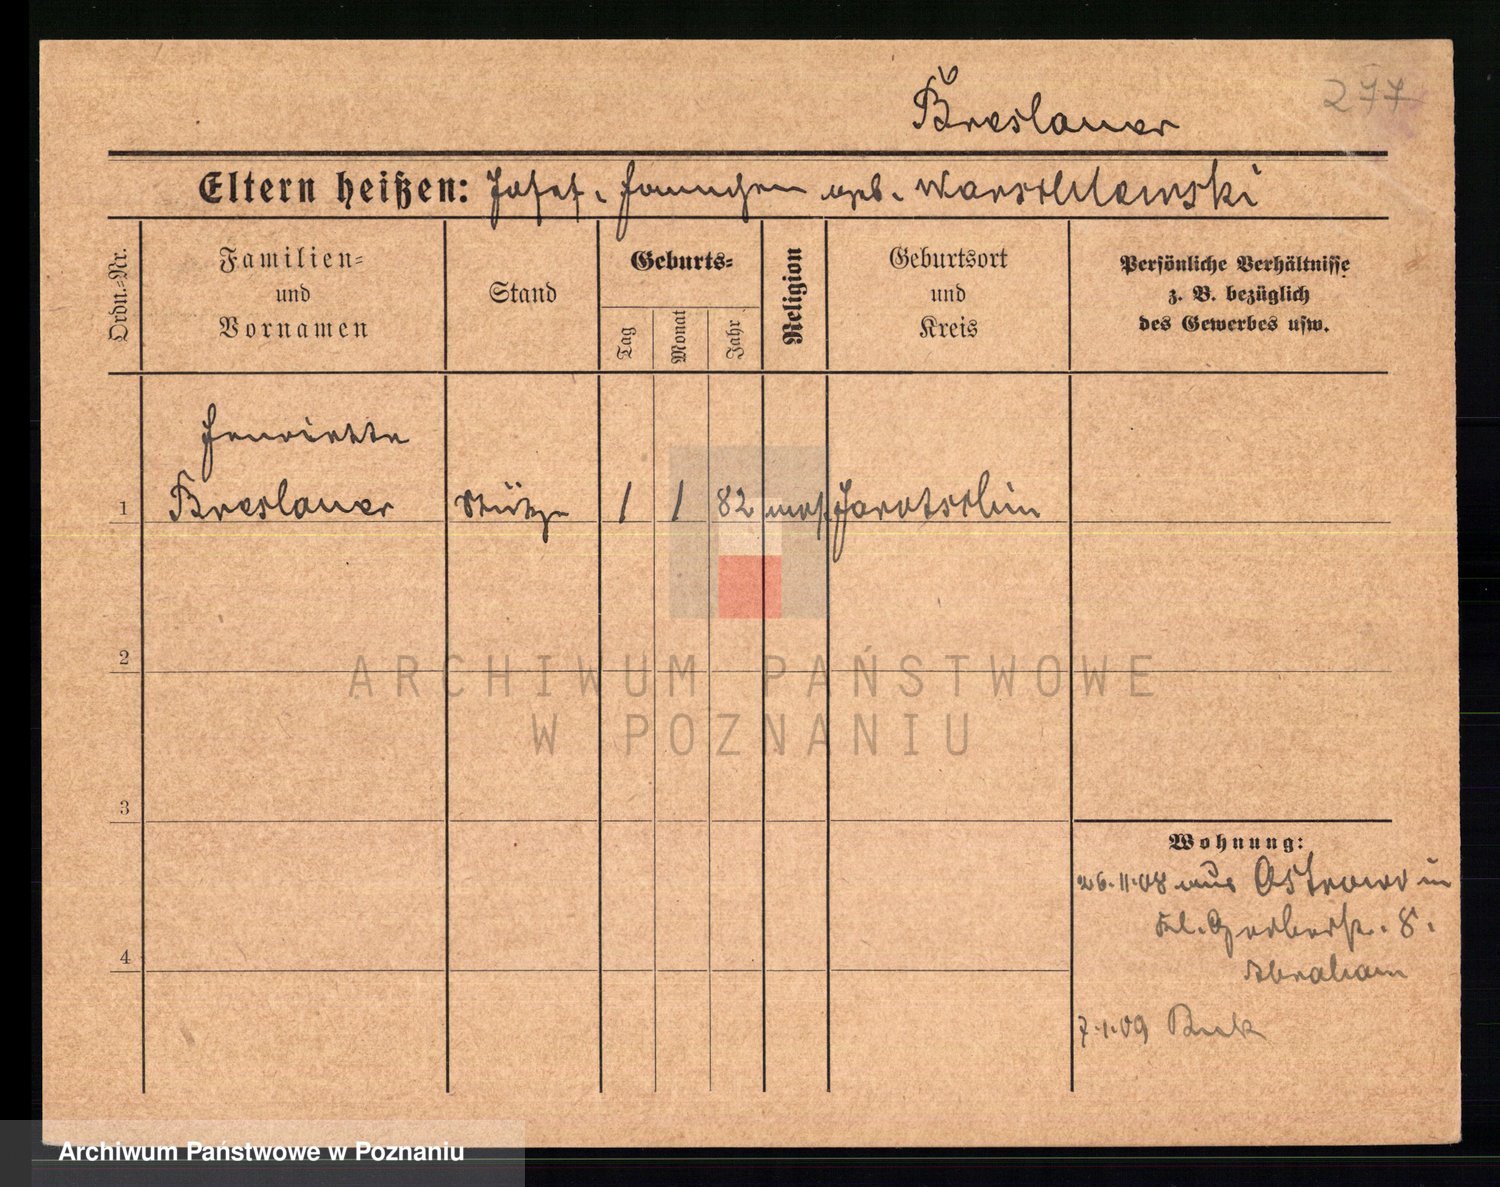 277
Breslauer
Eltern heißen: Josef, Hannchen geb. Warschawski
Ordn.-Nr.
Familien-
und
Vornamen
Stand
Geburts-
Tag
Monat
Jahr
Religion
Geburtsort
und
Kreis
Persönliche Verhältnisse
z. B. bezüglich
des Gewerbes usw.
Henriette
1 Breslauer Stütze 1 1 82 mos. Jarotschin
2
3
4
Wohnung:
26.11.08 aus Ostrowo in
Kl. Gerberstr. 8.
Abraham
7.1.09 Buk
ARCHIWUM PAŃSTWOWE
W POZNANIU
Archiwum Państwowe w Poznaniu